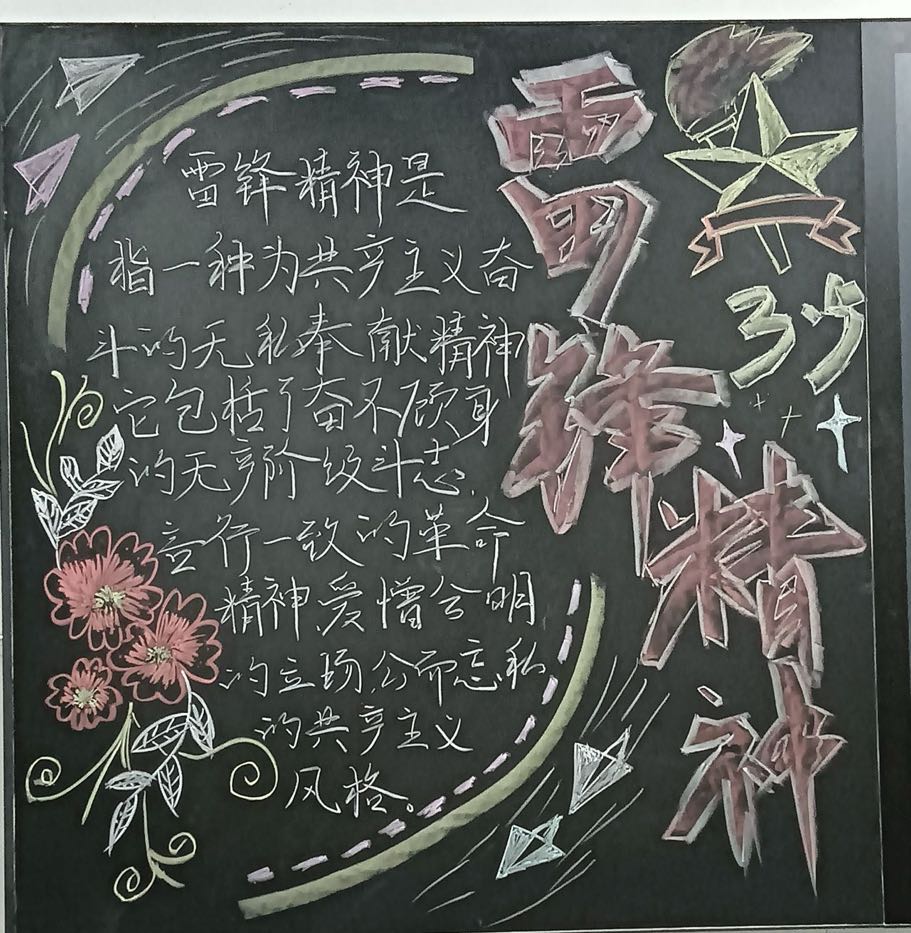 雷锋精神
雷锋精神是
指一种为共产主义奋
斗的无私奉献精神
它包括了奋不顾身
的无产阶级斗志,
言行一致的革命
精神,爱憎分明
的立场,公而忘私
的共产主义
风格。